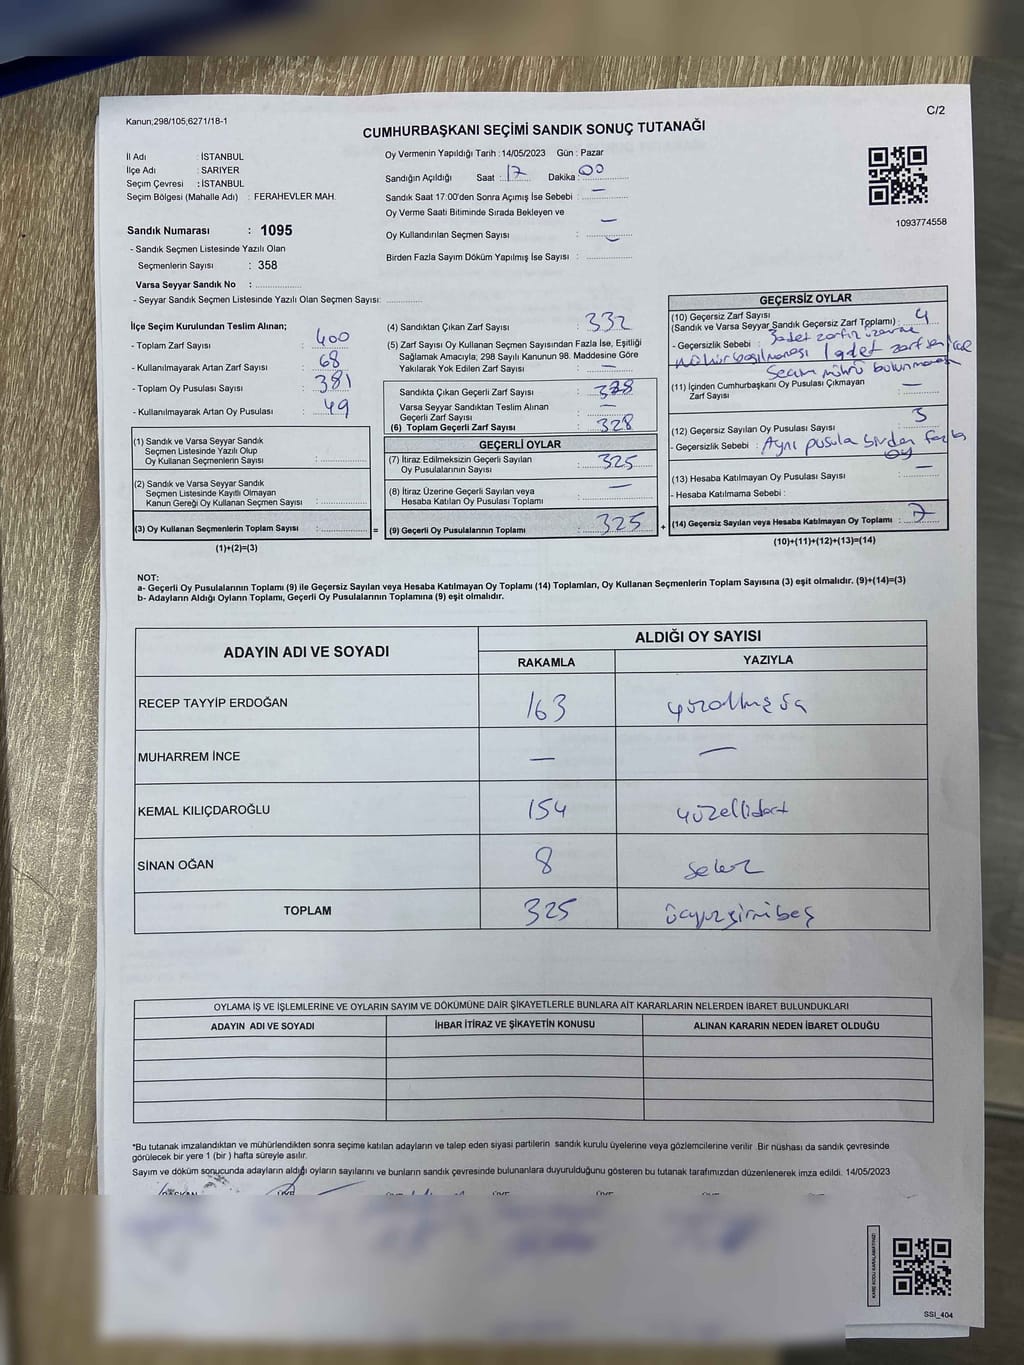 C/2
Kanun;298/105,6271/18-1
CUMHURBAŞKANI SEÇİMİ SANDIK SONUÇ TUTANAĞI
İl Adı : İSTANBUL
İlçe Adı : SARIYER
Seçim Çevresi : İSTANBUL
Seçim Bölgesi (Mahalle Adı) : FERAHEVLER MAH.
Sandık Numarası : 1095
- Sandık Seçmen Listesinde Yazılı Olan
Seçmenlerin Sayısı : 358
Varsa Seyyar Sandık No :
- Seyyar Sandık Seçmen Listesinde Yazılı Olan Seçmen Sayısı:
Oy Vermenin Yapıldığı Tarih : 14/05/2023 Gün : Pazar
Sandığın Açıldığı Saat : 17 Dakika : 00
Sandık Saat 17:00'den Sonra Açımış İse Sebebi : —
Oy Verme Saati Bitiminde Sırada Bekleyen ve
Oy Kullandırılan Seçmen Sayısı : —
Birden Fazla Sayım Döküm Yapılmış İse Sayısı :
1093774558
İlçe Seçim Kurulundan Teslim Alınan;
- Toplam Zarf Sayısı : 400
- Kullanılmayarak Artan Zarf Sayısı : 68
- Toplam Oy Pusulası Sayısı : 381
- Kullanılmayarak Artan Oy Pusulası : 49
(1) Sandık ve Varsa Seyyar Sandık
Seçmen Listesinde Yazılı Olup
Oy Kullanan Seçmenlerin Sayısı :
(2) Sandık ve Varsa Seyyar Sandık
Seçmen Listesinde Kayıtlı Olmayan
Kanun Gereği Oy Kullanan Seçmen Sayısı :
(3) Oy Kullanan Seçmenlerin Toplam Sayısı : =
(1)+(2)=(3)
(4) Sandıktan Çıkan Zarf Sayısı : 332
(5) Zarf Sayısı Oy Kullanan Seçmen Sayısından Fazla İse, Eşitliği
Sağlamak Amacıyla; 298 Sayılı Kanunun 98. Maddesine Göre
Yakılarak Yok Edilen Zarf Sayısı : —
Sandıkta Çıkan Geçerli Zarf Sayısı : 328
Varsa Seyyar Sandıktan Teslim Alınan
Geçerli Zarf Sayısı : —
(6) Toplam Geçerli Zarf Sayısı : 328
GEÇERLİ OYLAR
(7) İtiraz Edilmeksizin Geçerli Sayılan
Oy Pusulalarının Sayısı : 325
(8) İtiraz Üzerine Geçerli Sayılan veya
Hesaba Katılan Oy Pusulası Toplamı : —
(9) Geçerli Oy Pusulalarının Toplamı : 325 +
GEÇERSİZ OYLAR
(10) Geçersiz Zarf Sayısı
(Sandık ve Varsa Seyyar Sandık Geçersiz Zarf Toplamı) : 4
- Geçersizlik Sebebi : 3 adet zarfın üzerine
mühür basılmaması 1 adet zarf
Seçim mührü bulunmamak
(11) İçinden Cumhurbaşkanı Oy Pusulası Çıkmayan
Zarf Sayısı : —
(12) Geçersiz Sayılan Oy Pusulası Sayısı : 3
- Geçersizlik Sebebi : Aynı pusula birden fazla
oy
(13) Hesaba Katılmayan Oy Pusulası Sayısı : —
- Hesaba Katılmama Sebebi :
(14) Geçersiz Sayılan veya Hesaba Katılmayan Oy Toplamı : 7
(10)+(11)+(12)+(13)=(14)
NOT:
a- Geçerli Oy Pusulalarının Toplamı (9) ile Geçersiz Sayılan veya Hesaba Katılmayan Oy Toplamı (14) Toplamları, Oy Kullanan Seçmenlerin Toplam Sayısına (3) eşit olmalıdır. (9)+(14)=(3)
b- Adayların Aldığı Oyların Toplamı, Geçerli Oy Pusulalarının Toplamına (9) eşit olmalıdır.
ADAYIN ADI VE SOYADI
ALDIĞI OY SAYISI
RAKAMLA YAZIYLA
RECEP TAYYİP ERDOĞAN 163 yüzaltmışüç
MUHARREM İNCE — —
KEMAL KILIÇDAROĞLU 154 yüzellidört
SİNAN OĞAN 8 sekiz
TOPLAM 325 üçyüzyirmibeş
OYLAMA İŞ VE İŞLEMLERİNE VE OYLARIN SAYIM VE DÖKÜMÜNE DAİR ŞİKAYETLERLE BUNLARA AİT KARARLARIN NELERDEN İBARET BULUNDUKLARI
ADAYIN ADI VE SOYADI İHBAR İTİRAZ VE ŞİKAYETİN KONUSU ALINAN KARARIN NEDEN İBARET OLDUĞU
*Bu tutanak imzalandıktan ve mühürlendikten sonra seçime katılan adayların ve talep eden siyasi partilerin sandık kurulu üyelerine veya gözlemcilerine verilir. Bir nüshası da sandık çevresinde
görülecek bir yere 1 (bir ) hafta süreyle asılır.
Sayım ve döküm sonucunda adayların aldığı oyların sayılarını ve bunların sandık çevresinde bulunanlara duyurulduğunu gösteren bu tutanak tarafımızdan düzenlenerek imza edildi. 14/05/2023
KARE KODU KARALAMAYINIZ!
SSİ_404